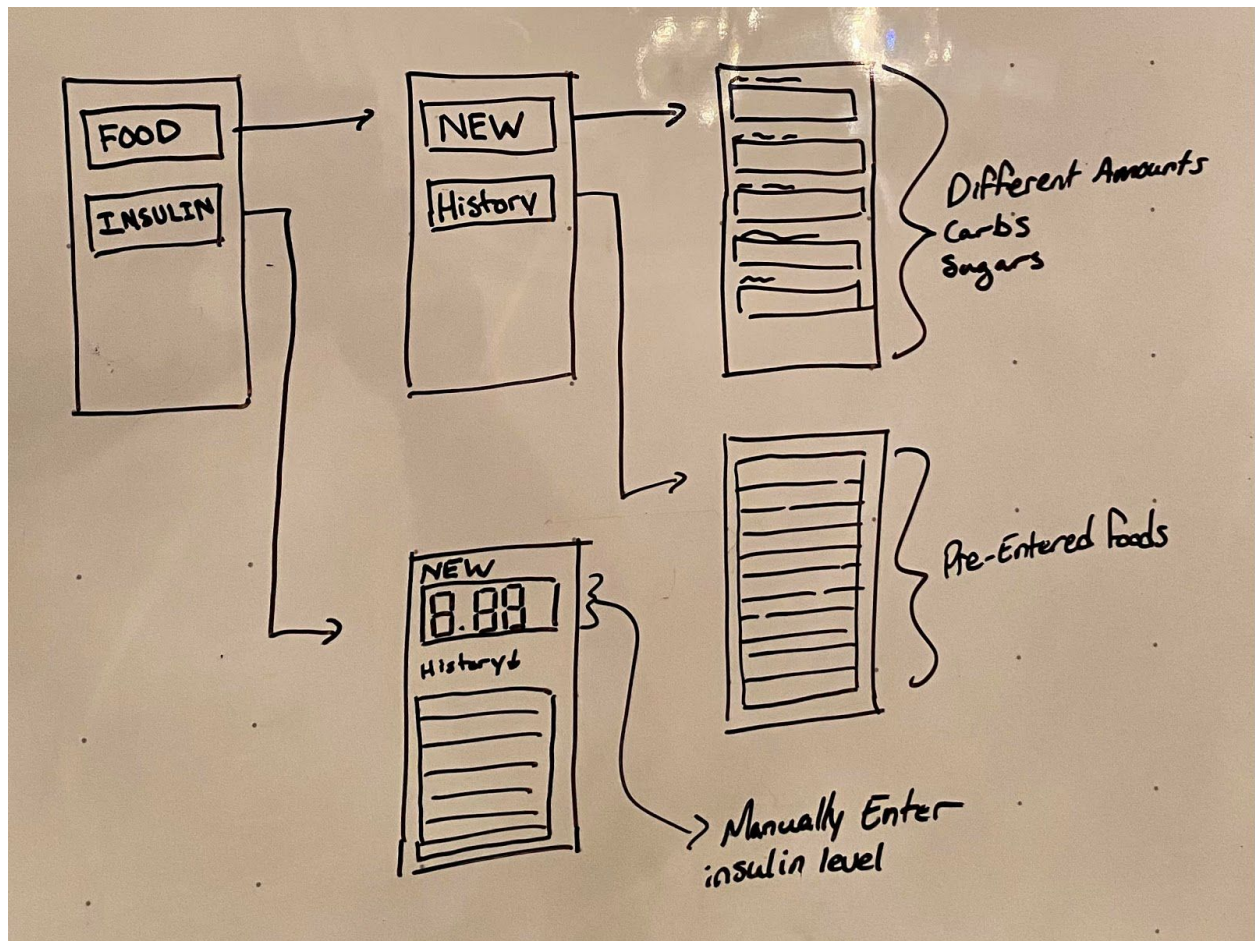 FOOD
INSULIN
NEW
History
Different Amounts
Carbs
Sugars
Pre-Entered foods
NEW
8.88
History↓
Manually Enter
insulin level